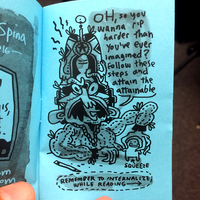 Spina
OH, so you
wanna rip
harder than
you've ever
imagined?
Follow these
steps and
attain the
attainable
SQUEEZE
REMEMBER TO INTERNALIZE
WHILE READING